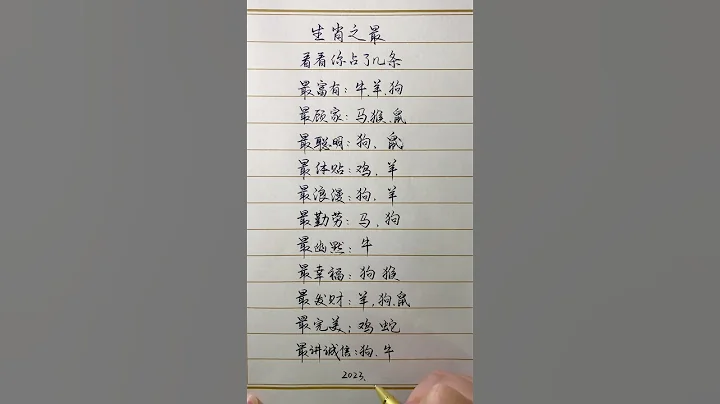 生肖之最
看看你占了几条
最富有：牛.羊.狗
最顾家：马.猴.鼠
最聪明：狗、鼠
最体贴：鸡，羊
最浪漫：狗，羊
最勤劳：马，狗
最幽默：牛
最幸福：狗 猴
最发财：羊，狗.鼠
最完美；鸡 蛇
最讲诚信：狗.牛
2023.